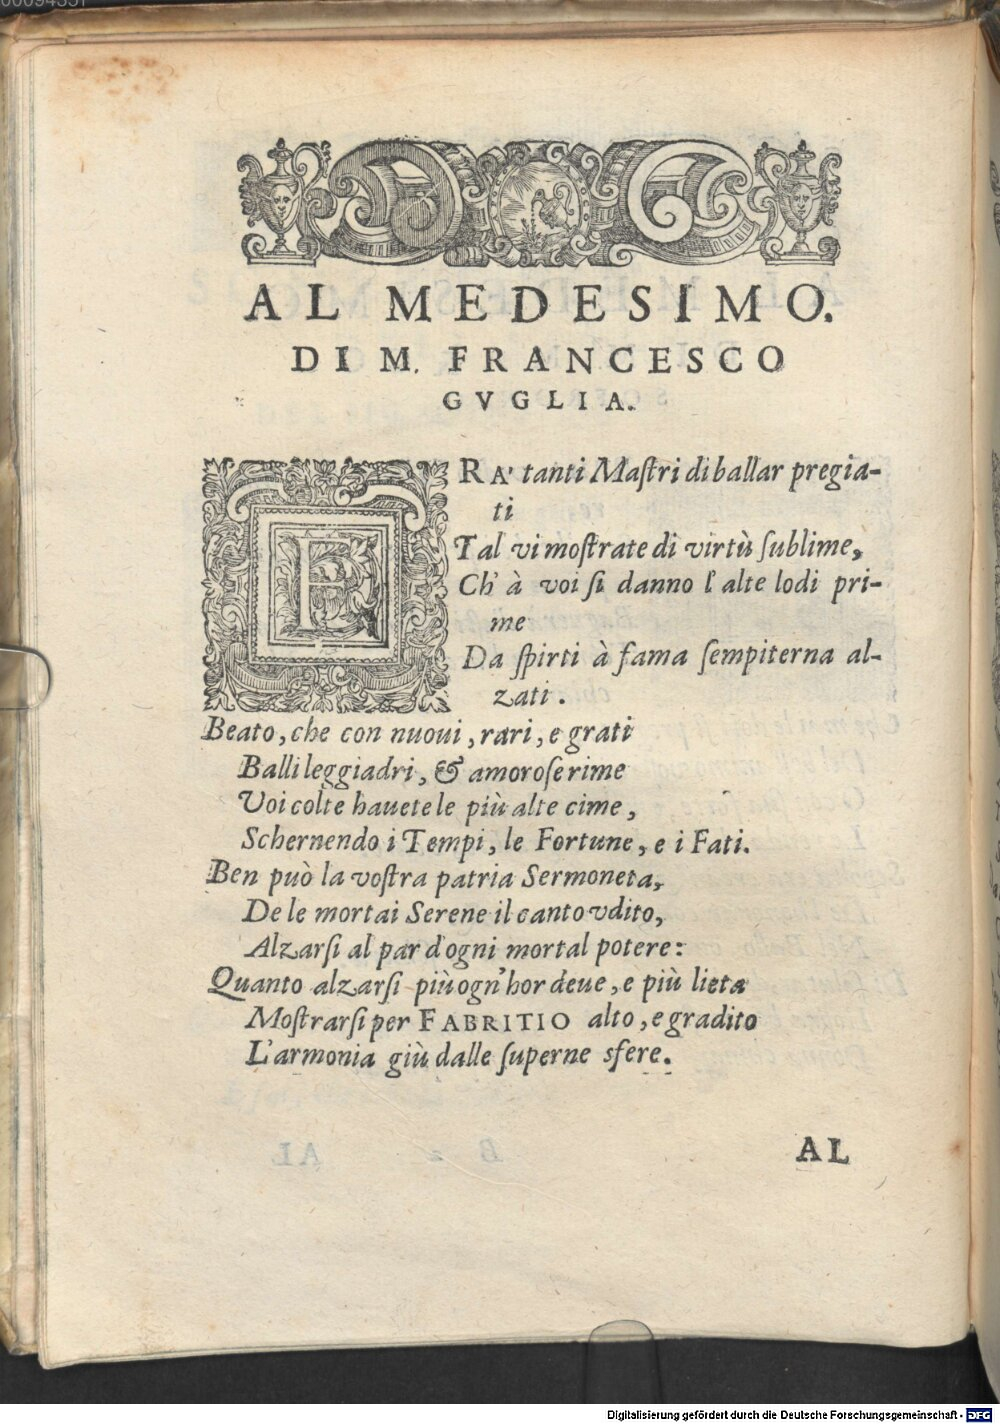 AL MEDESIMO.
DI M. FRANCESCO
GVGLIA.
FRA' tanti Maſtri di ballar pregia-
ti
Tal vi moſtrate di virtù ſublime,
Ch' à voi ſi danno l'alte lodi pri-
me
Da ſpirti à fama ſempiterna al-
zati.
Beato, che con nuoui, rari, e grati
Balli leggiadri, & amoroſe rime
Voi colte hauete le più alte cime,
Schernendo i Tempi, le Fortune, e i Fati.
Ben può la voſtra patria Sermoneta,
De le mortai Serene il canto vdito,
Alzarſi al par d'ogni mortal potere:
Quanto alzarſi più ogn'hor deue, e più lieta
Moſtrarſi per FABRITIO alto, e gradito
L'armonia giù dalle ſuperne sfere.
AL
Digitalisierung gefördert durch die Deutsche Forschungsgemeinschaft - DFG